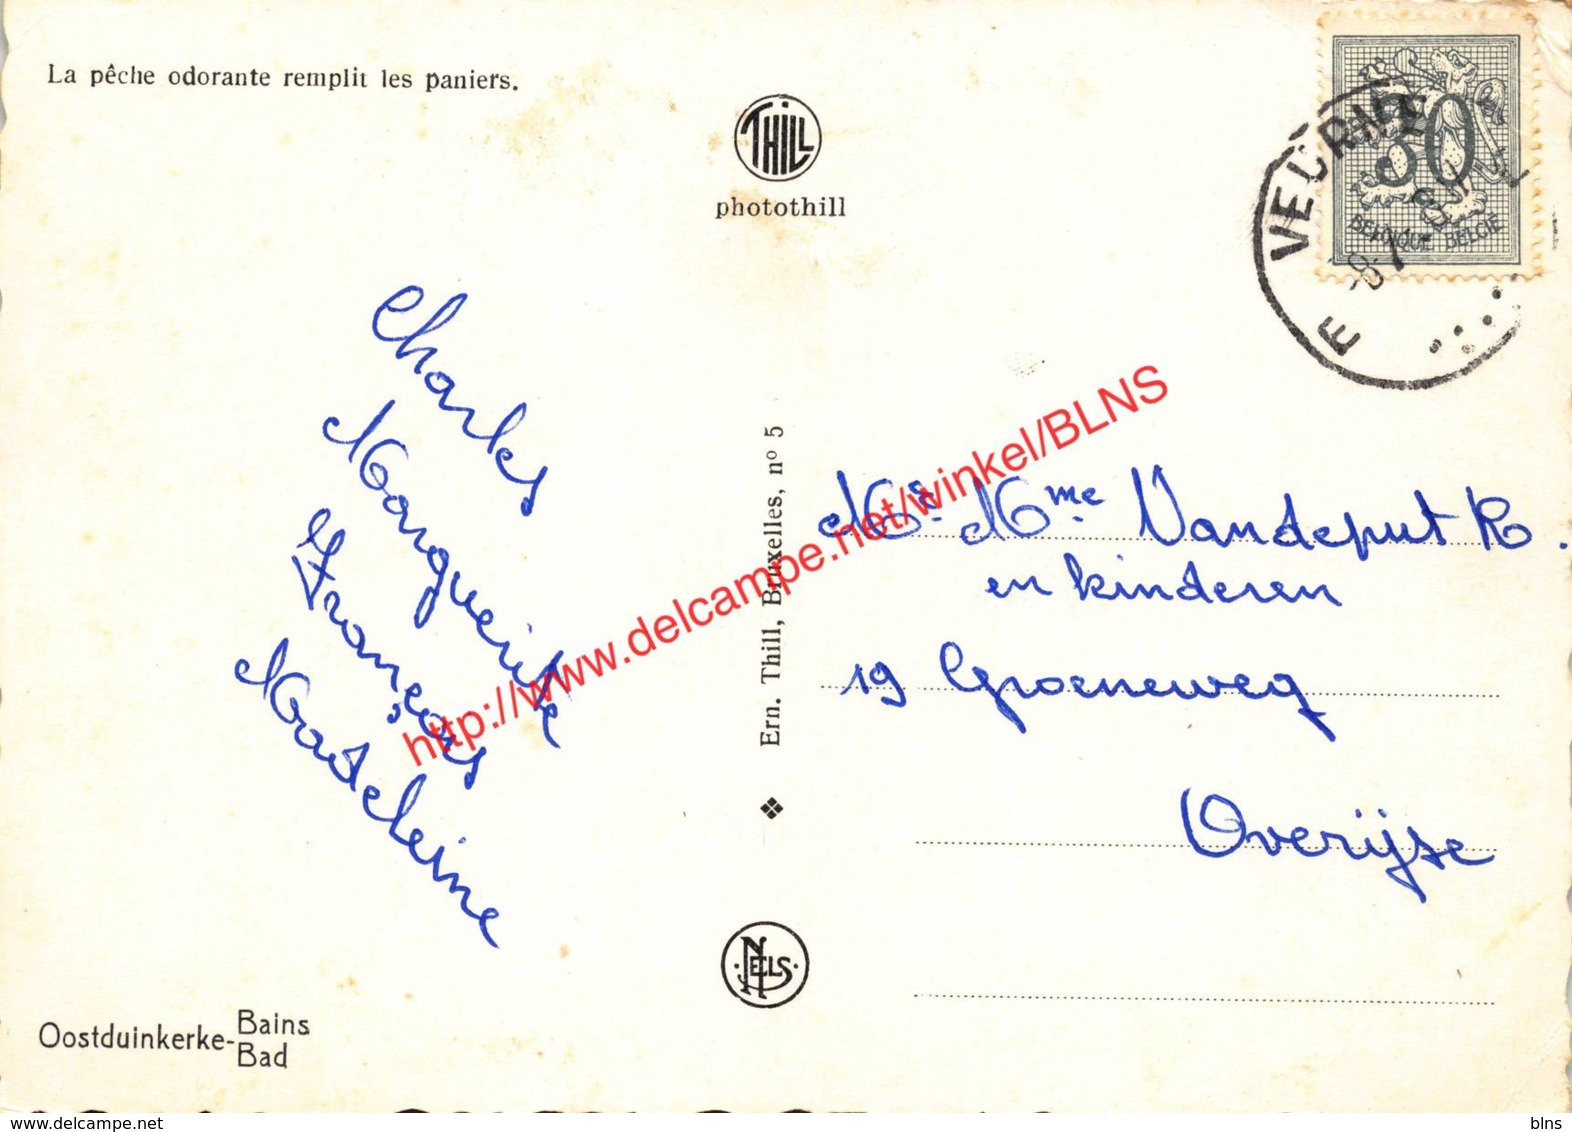 La pêche odorante remplit les paniers.
THILL
photothill
50
BELGIQUE BELGIË
VEURNE
E
Charles
Marguerite
François
Madeleine
Ern. Thill, Bruxelles, nº 5
Mr Mme Vandeput R.
en kinderen
19 Groeneweg
Overijse
NELS
Oostduinkerke-Bains
Bad
http://www.delcampe.net/winkel/BLNS
www.delcampe.net
blns